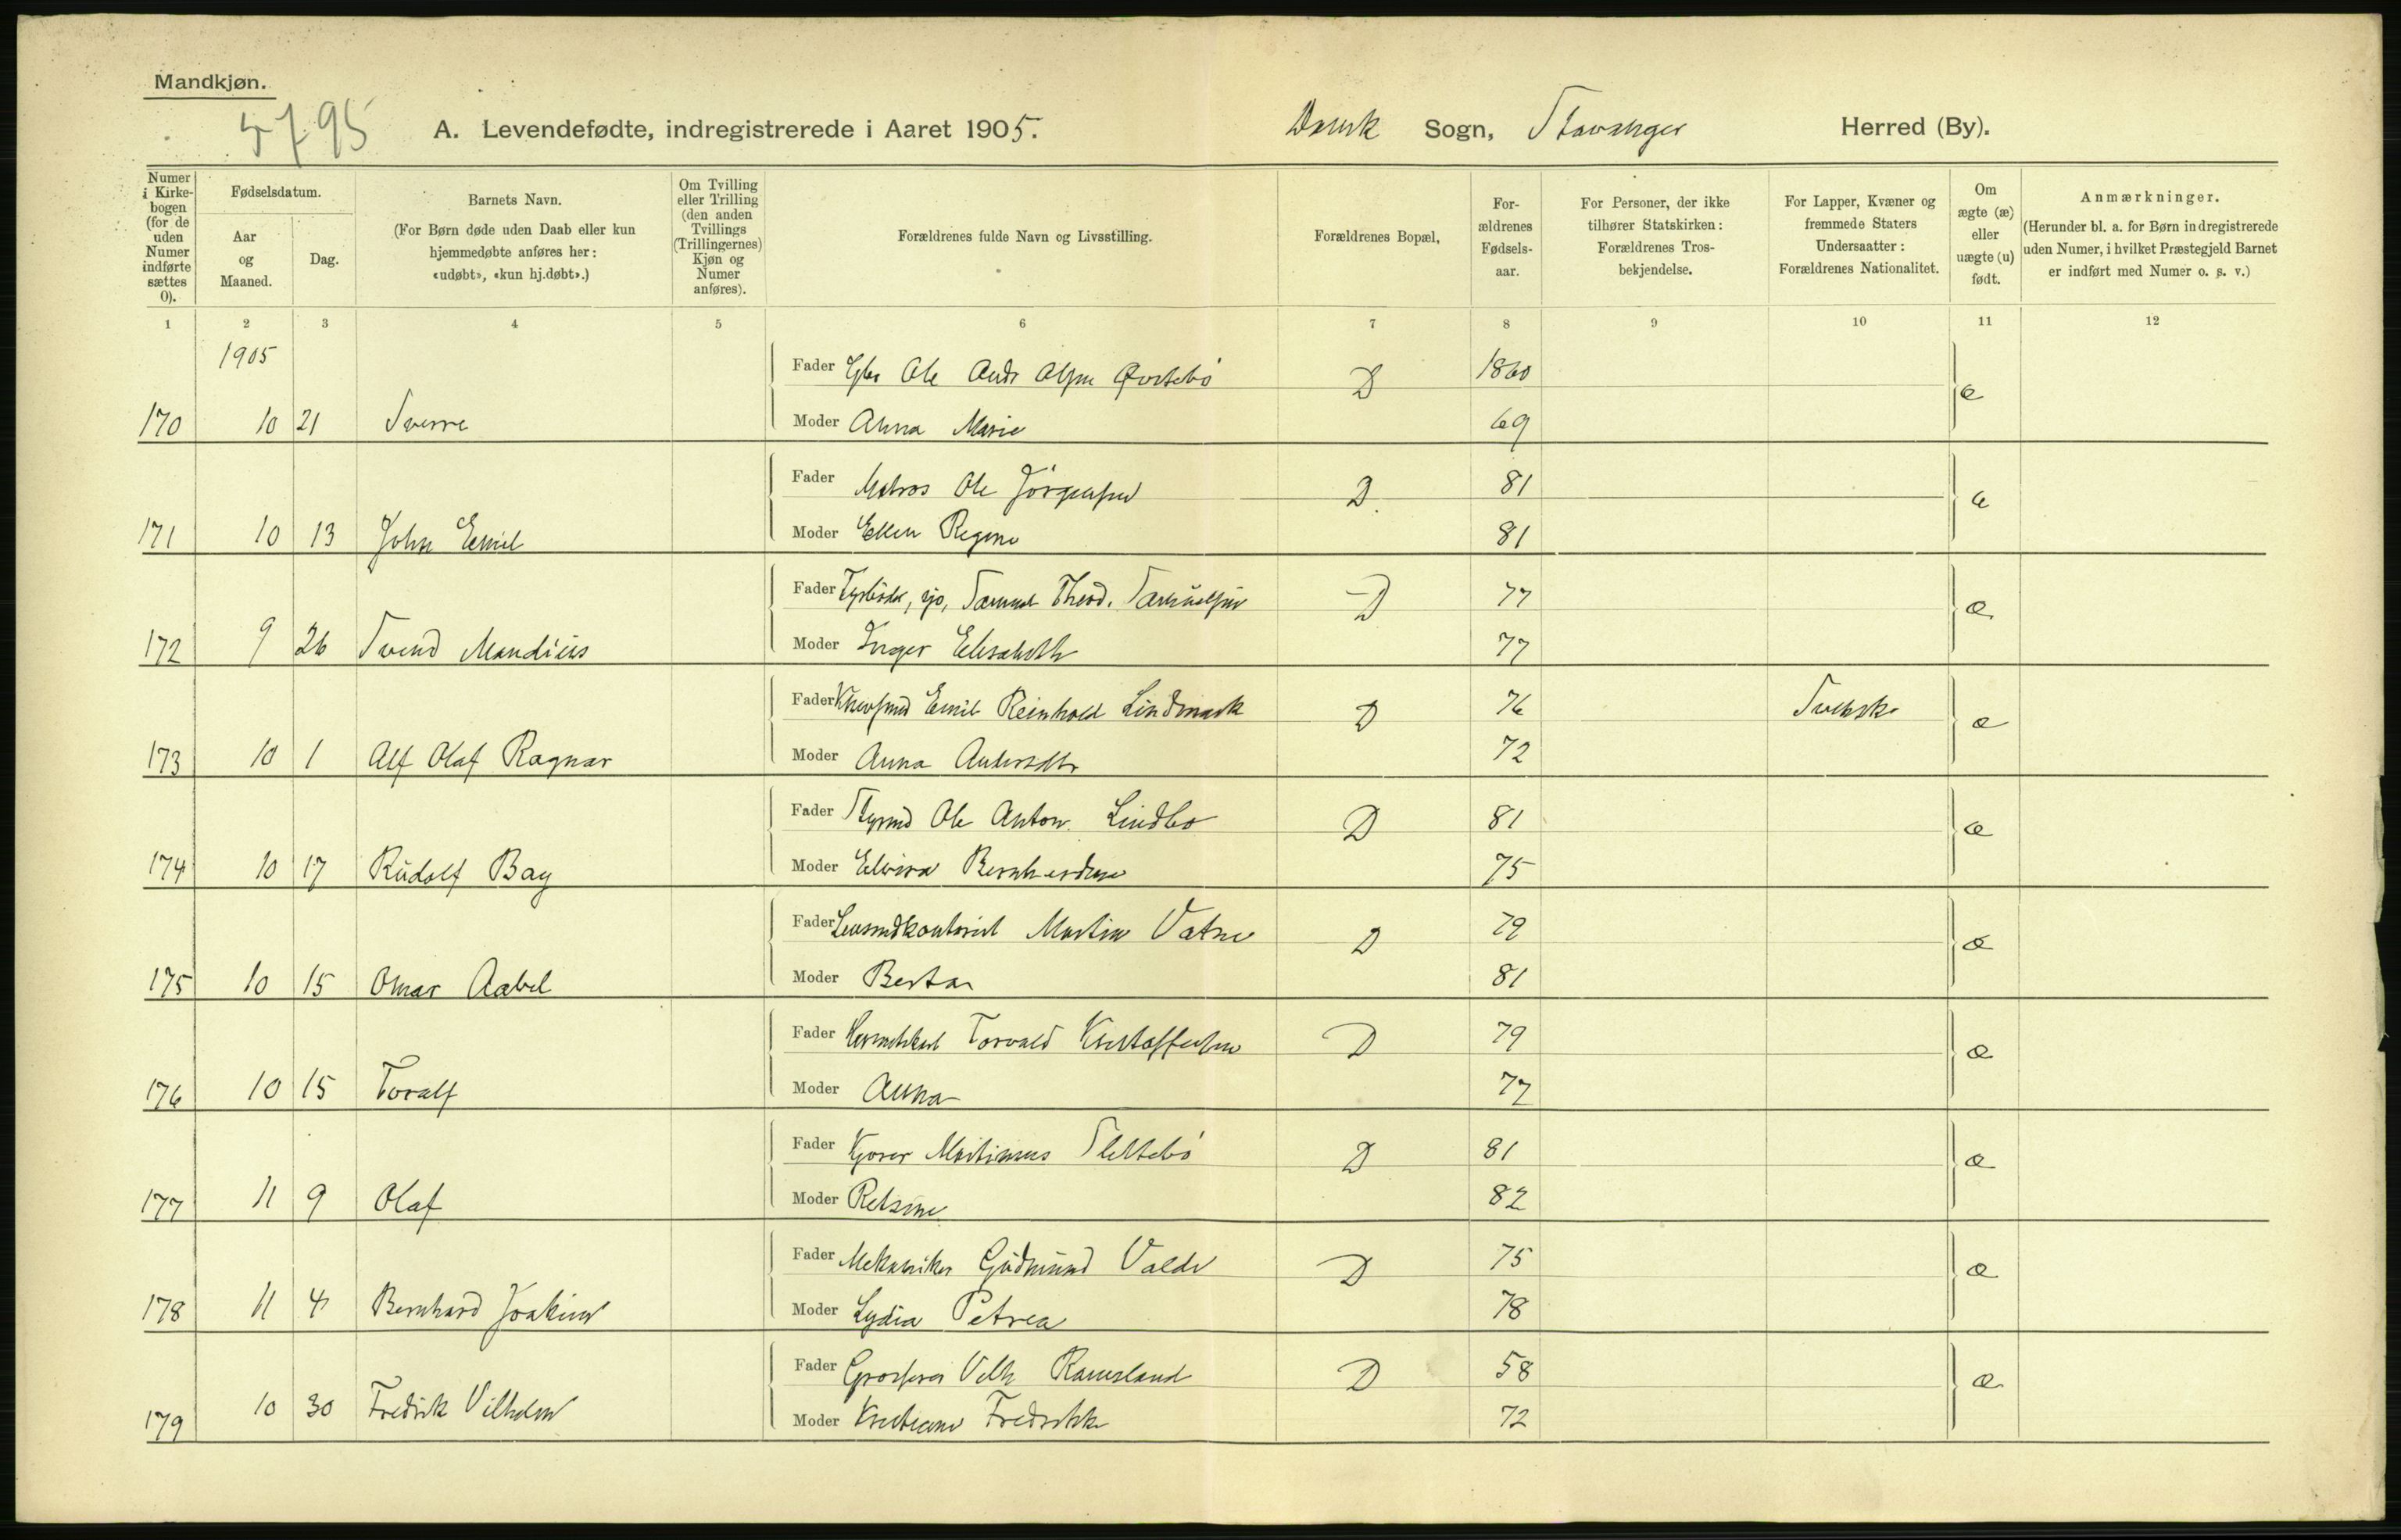 Mandkjøn.
5795
A. Levendefødte, indregistrerede i Aaret 1905.
Domk Sogn, Stavanger Herred (By).
Numer i Kirkebogen (for de uden Numer indførte sættes 0).
Fødselsdatum.
Aar og Maaned.
Dag.
Barnets Navn.
(For Børn døde uden Daab eller kun hjemmedøbte anføres her: «udøbt», «kun hj.døbt».)
Om Tvilling eller Trilling (den anden Tvillings (Trillingernes) Kjøn og Numer anføres).
Forældrenes fulde Navn og Livsstilling.
Forældrenes Bopæl,
Forældrenes Fødselsaar.
For Personer, der ikke tilhører Statskirken: Forældrenes Trosbekjendelse.
For Lapper, Kvæner og fremmede Staters Undersaatter: Forældrenes Nationalitet.
Om ægte (æ) eller uægte (u) født.
Anmærkninger.
(Herunder bl. a. for Børn indregistrerede uden Numer, i hvilket Præstegjeld Barnet er indført med Numer o. s. v.)
1 2 3 4 5 6 7 8 9 10 11 12
1905
Fader Ole Andr Olsen Østebö D 1860 æ
170 10 21 Sverre Moder Anna Marie 69
Fader Matros Ole Jörgensen D. 81 æ
171 10 13 John Emil Moder Ellen Regine 81
Fader Fyrböder, Samuel Theod. Samuelsen D 77 æ
172 9 26 Svend Mandius Moder Inger Elisabeth 77
Fader Emil Reinhold Lindmark D 76 Svensk æ
173 10 1 Alf Olaf Ragnar Moder Anna Andersdtr 72
Fader Styrmd Ole Anton Lindbo D 81 æ
174 10 17 Rudolf Bay Moder Elvira Bernhardine 75
Fader Lensmdkontorist Martin Vatne D 79 æ
175 10 15 Omar Aabel Moder Berta 81
Fader Torvald Kristoffersen D 79 æ
176 10 15 Toralf Moder Anna 77
Fader Kjører Martinius Slettebö D 81 æ
177 11 9 Olaf Moder Retsine 82
Fader Mekaniker Gudmund Valde D 75 æ
178 11 4 Bernhard Joakim Moder Lydia Petrea 78
Fader Grosserer Vilh Ramsland D 58 æ
179 10 30 Fredrik Vilhelm Moder Kristiane Fredrikke 72